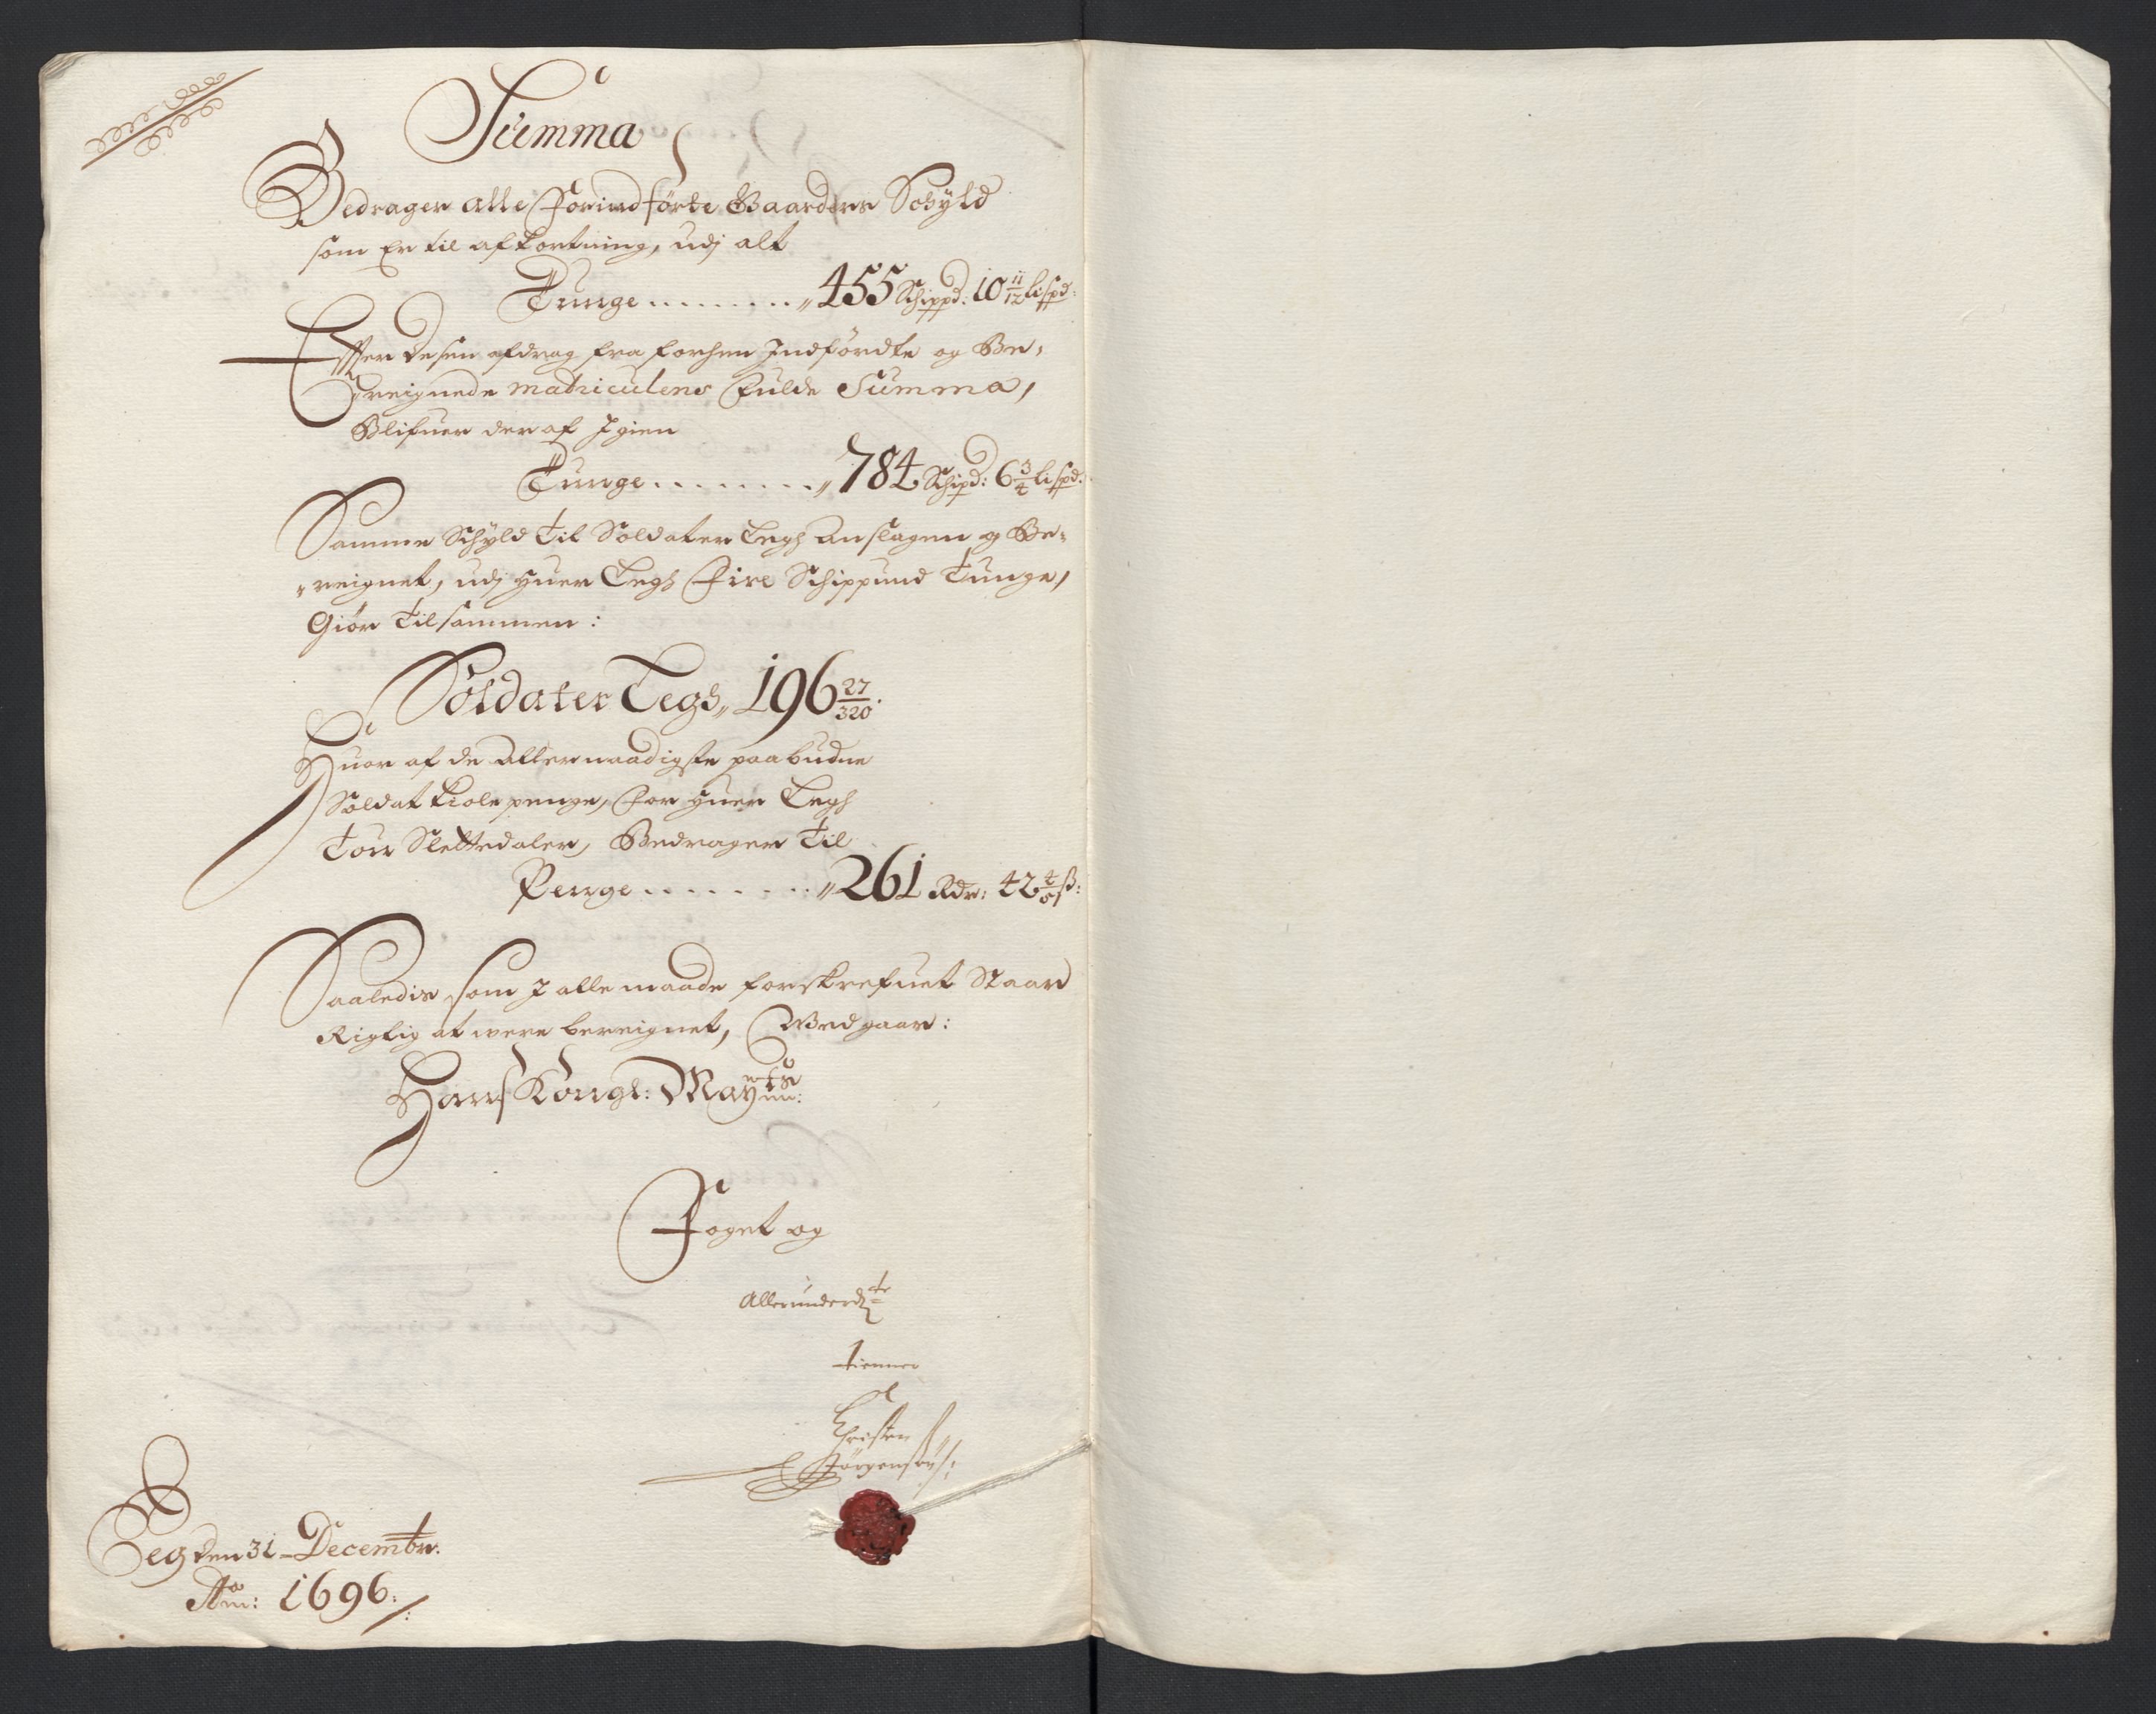 Summa
Bedrager alle Forindførte Gaarders Schyld
som Er til afkortning, udj alt
Tunge . . . . . . . . . „ 455 Schippd: 10 11/12 lispd:
Effter desen afdrag fra forhen Indførdte og Be„
„reignede matriculens Fulde Summa,
Blifuer der af Igien
Tunge . . . . . . . . „ 784 Schipd: 6 3/4 lispd:
Samme Schyld til Soldater Legh anslagen og Be„
„reignet, udj huer Legh Fire Schippund Tunge,
Giør Tilsammen :
Soldater Legh „ 196 27/320.
Huor af de Allernaadigste paabudne
Soldat kiole penge, for huer Legh
Toe Slettedaler, Bedrager til
Penge . . . . . . . . „ 261 Rdr: 42 4/5 ß:
Saaledis som I alle maade forskrefuet Staar
Rigtig at were bereignet, Vedgaar :
Hans Kongl: Maytz
Foget og
Allerunderd:te
tienner
Christen
Jørgensøn
Eeg den 31 Decembr:
Ao: 1696: